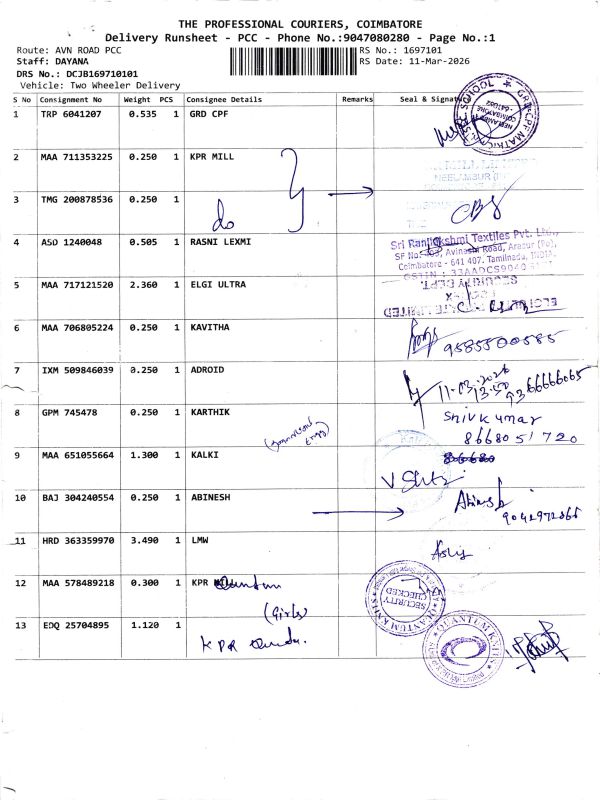 THE PROFESSIONAL COURIERS, COIMBATORE
Delivery Runsheet - PCC - Phone No.:9047080280 - Page No.:1
Route: AVN ROAD PCC
RS No.: 1697101
Staff: DAYANA
RS Date: 11-Mar-2026
DRS No.: DCJB169710101
Vehicle: Two Wheeler Delivery
S No Consignment No Weight PCS Consignee Details Remarks Seal & Signature
1 TRP 6041207 0.535 1 GRD CPF
2 MAA 711353225 0.250 1 KPR MILL
NEELAMBUR
3 TMG 200878536 0.250 1
do
4 ASD 1240048 0.505 1 RASNI LEXMI
Sri Ranjlakshmi Textiles Pvt. Ltd.,
Avinashi Road, Arasur (Po),
Coimbatore - 641 407. Tamilnadu, INDIA.
GSTIN : 33AADCS9040
5 MAA 717121520 2.360 1 ELGI ULTRA
SECURITY DEPT.
6 MAA 706805224 0.250 1 KAVITHA
9585500585
7 IXM 509846039 0.250 1 ADROID
11-03-2026
13:50
8 GPM 745478 0.250 1 KARTHIK
Shivkumar
8668051720
9 MAA 651055664 1.300 1 KALKI
10 BAJ 304240554 0.250 1 ABINESH
Abinesh
11 HRD 363359970 3.490 1 LMW
12 MAA 578489218 0.300 1 KPR
(Girls)
SECURITY
CHECKED
QUANTUM KNITS
13 EDQ 25704895 1.120 1
KPR
QUANTUM KNITS